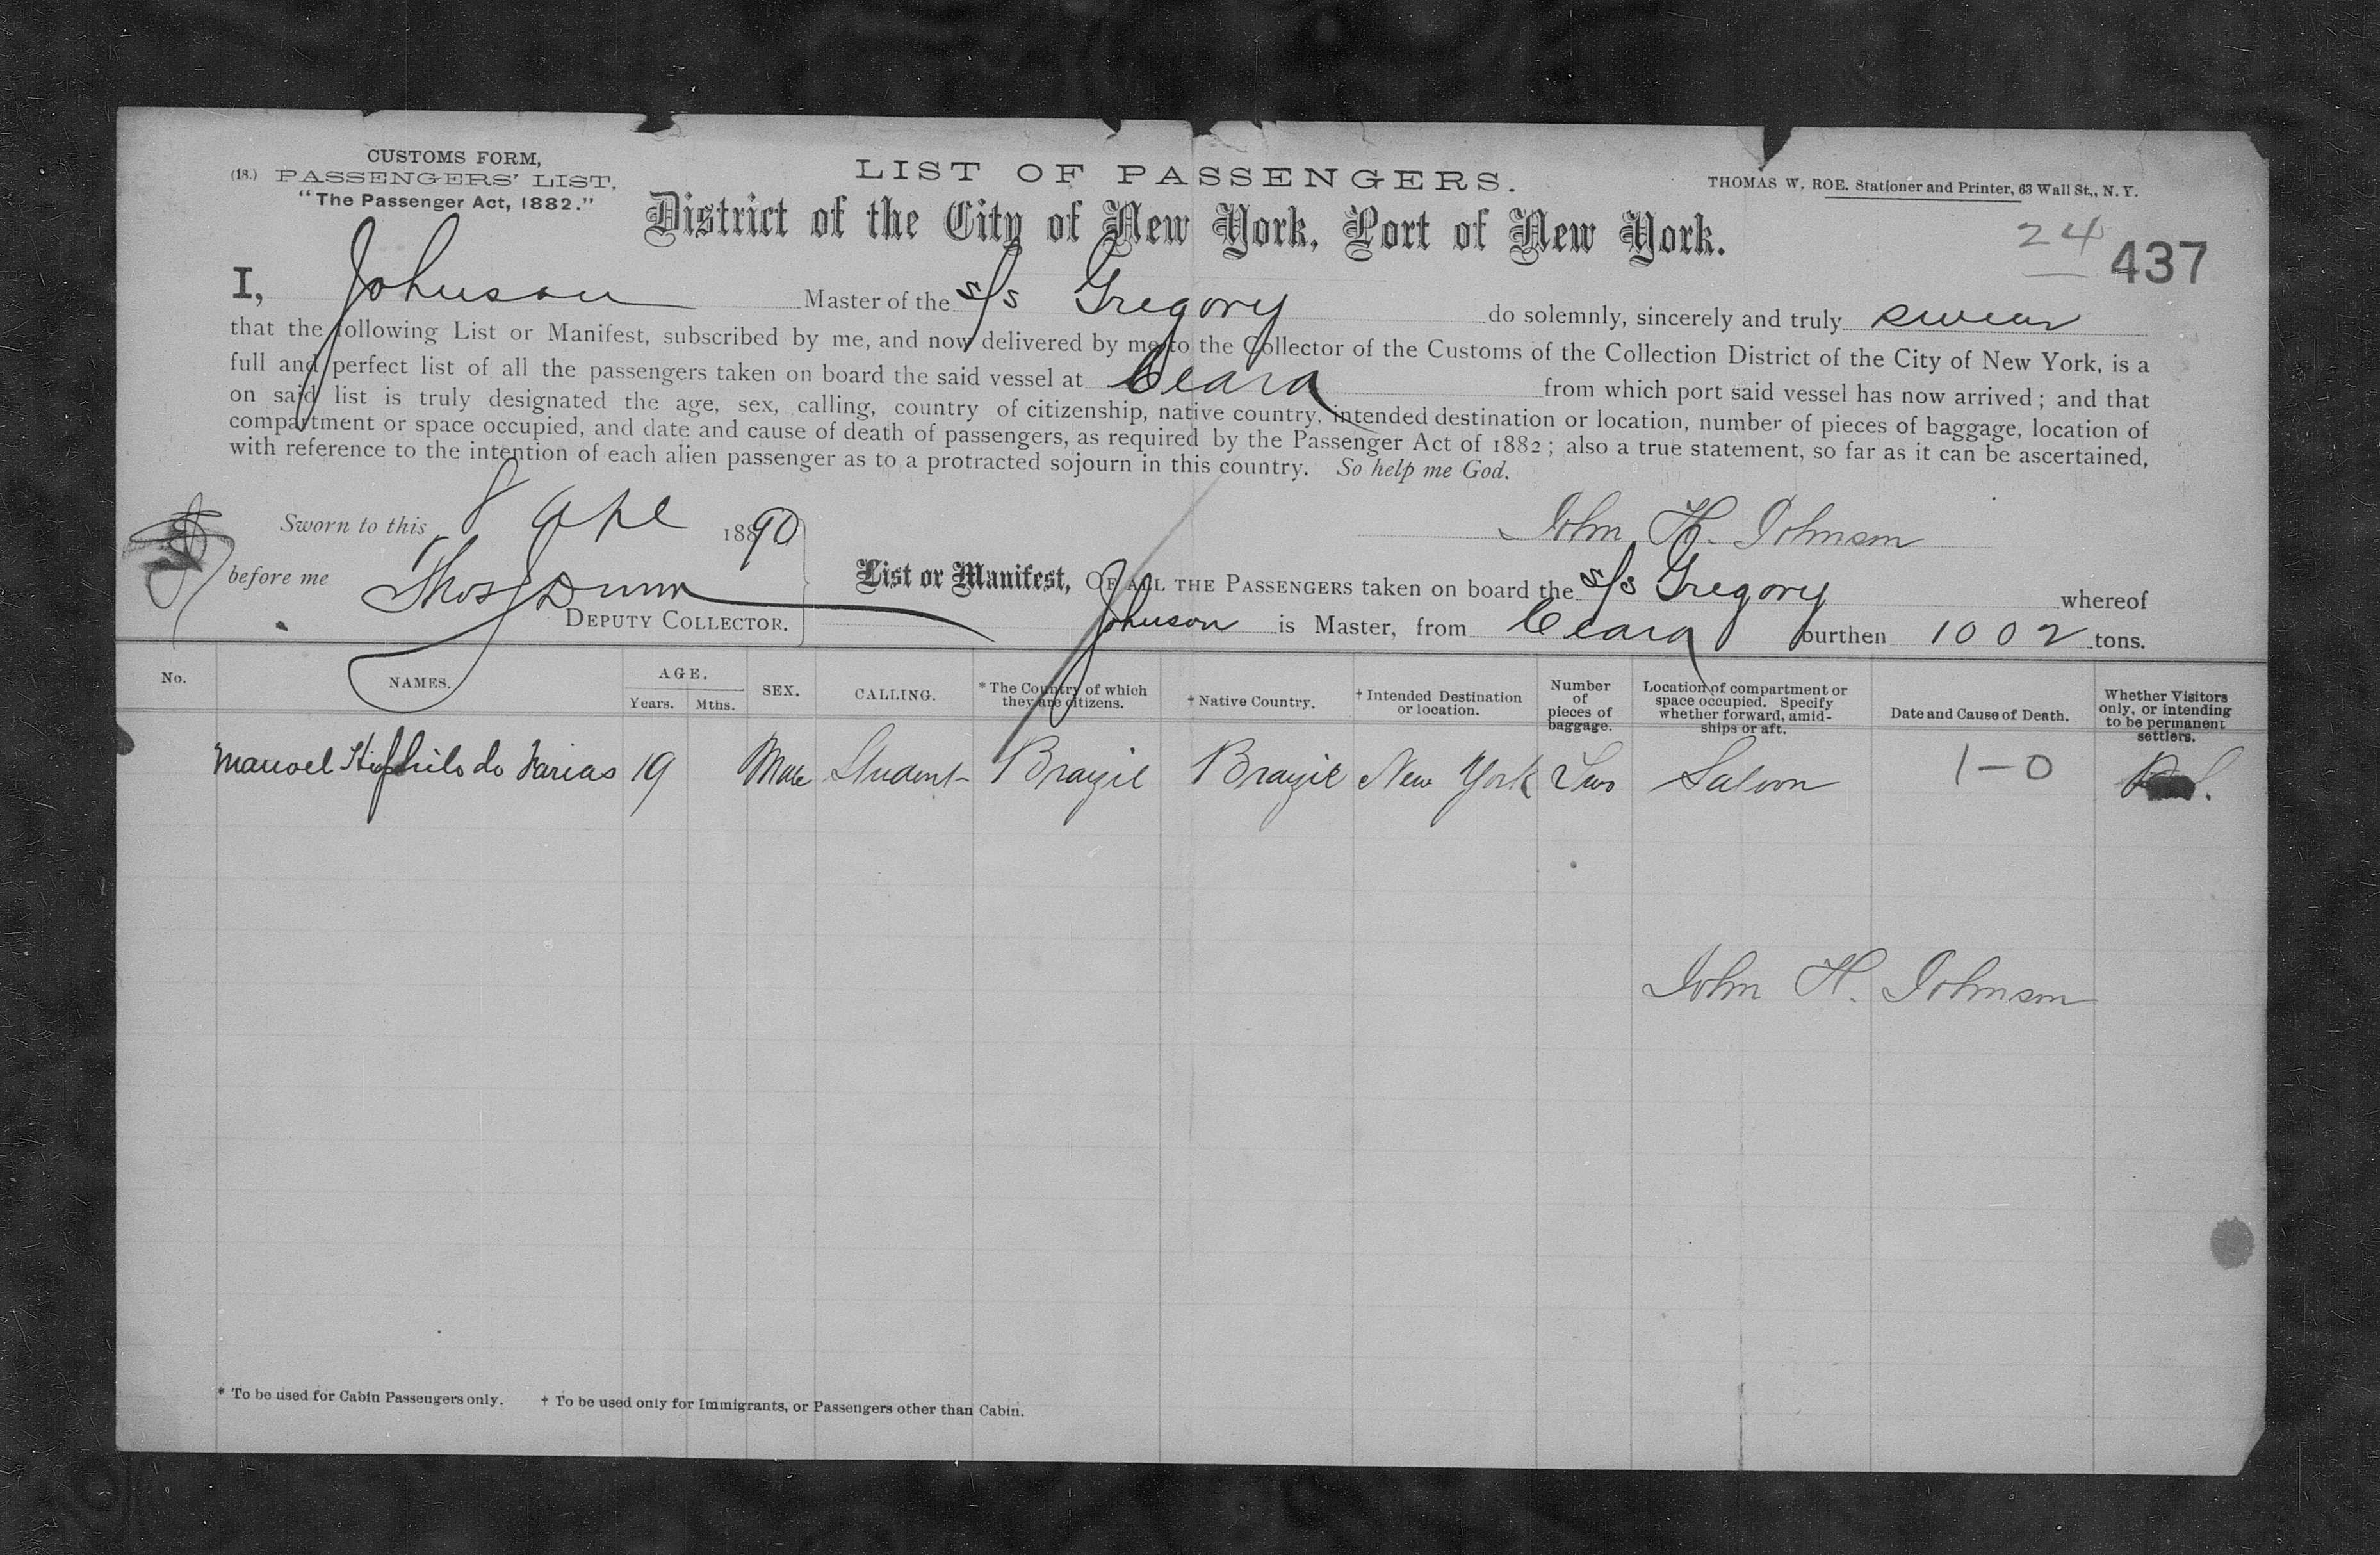 CUSTOMS FORM,
(18.) PASSENGERS' LIST.
"The Passenger Act, 1882."
LIST OF PASSENGERS.
THOMAS W. ROE, Stationer and Printer, 63 Wall St., N. Y.
District of the City of New York, Port of New York.
24
437
I, Johnson Master of the s/s Gregory do solemnly, sincerely and truly swear
that the following List or Manifest, subscribed by me, and now delivered by me to the Collector of the Customs of the Collection District of the City of New York, is a
full and perfect list of all the passengers taken on board the said vessel at Ceara from which port said vessel has now arrived; and that
on said list is truly designated the age, sex, calling, country of citizenship, native country, intended destination or location, number of pieces of baggage, location of
compartment or space occupied, and date and cause of death of passengers, as required by the Passenger Act of 1882; also a true statement, so far as it can be ascertained,
with reference to the intention of each alien passenger as to a protracted sojourn in this country. So help me God.
Sworn to this 8 Apl 1890
John H. Johnson
before me Thos J Dunn
DEPUTY COLLECTOR.
List or Manifest, OF ALL THE PASSENGERS taken on board the s/s Gregory whereof
Johnson is Master, from Ceara burthen 1002 tons.
No. NAMES. AGE. Years. Mths. SEX. CALLING. * The Country of which they are citizens. † Native Country. † Intended Destination or location. Number of pieces of baggage. Location of compartment or space occupied. Specify whether forward, amidships or aft. Date and Cause of Death. Whether Visitors only, or intending to be permanent settlers.
Manoel do Farias 19 Male Student Brazil Brazil New York Two Saloon 1-0
John H. Johnson
* To be used for Cabin Passengers only. † To be used only for Immigrants, or Passengers other than Cabin.